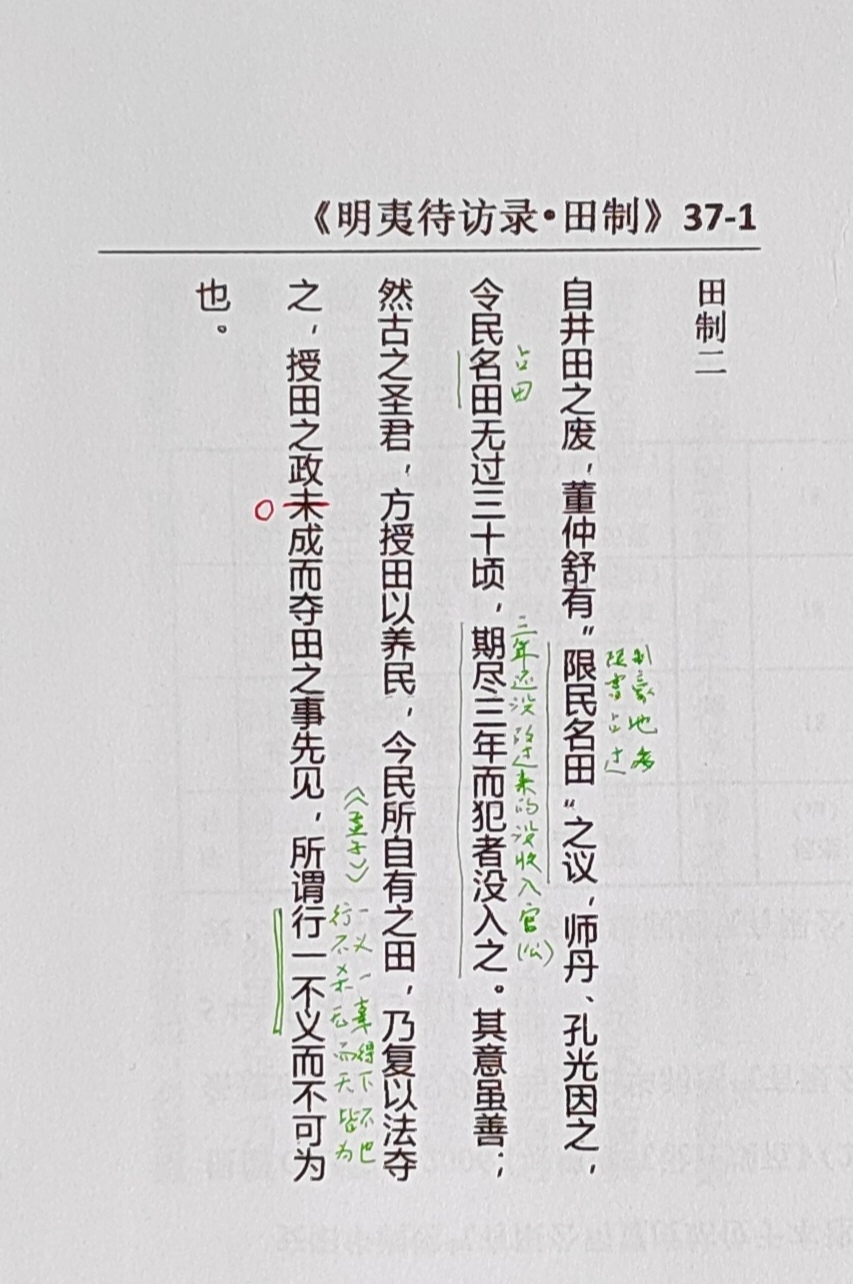 《明夷待访录•田制》37-1
田制二
限制
富豪
占地
过多
自井田之废，董仲舒有“限民名田”之议，师丹、孔光因之，
占田
三年还没改过来的没收入官（公）
令民名田无过三十顷，期尽三年而犯者没入之。其意虽善；
然古之圣君，方授田以养民，今民所自有之田，乃复以法夺
《孟子》
行一
不义
杀一
无辜
而得
天下
皆不
为也
之，授田之政未成而夺田之事先见，所谓行一不义而不可为
也。